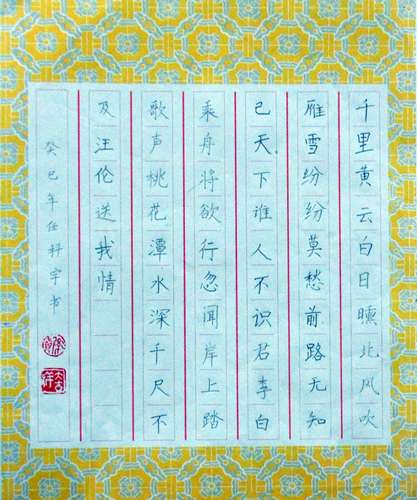 千里黄云白日曛北风吹
雁雪纷纷莫愁前路无知
己天下谁人不识君李白
乘舟将欲行忽闻岸上踏
歌声桃花潭水深千尺不
及汪伦送我情
癸巳年任科宇书